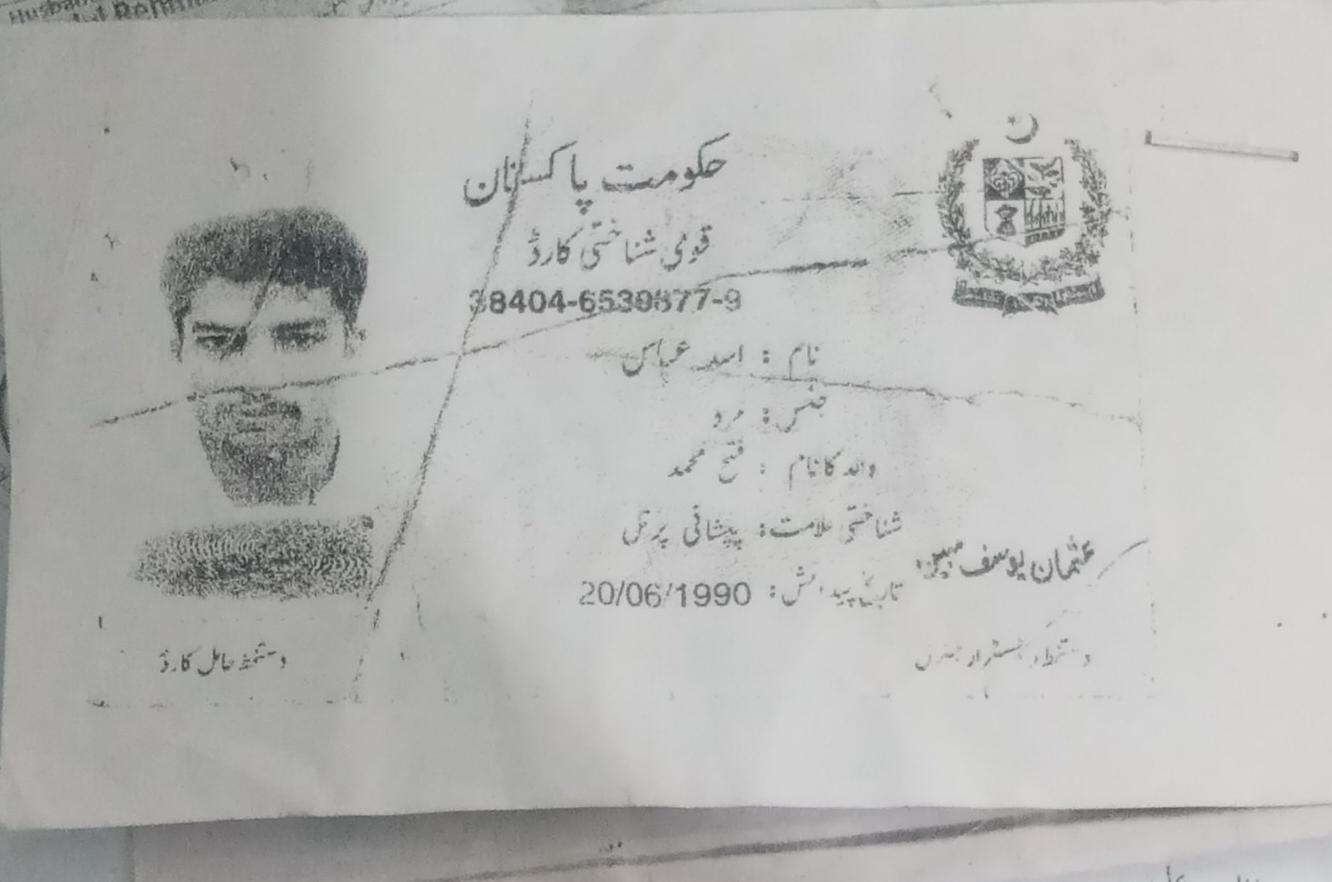 Husban
حکومت پاکستان
قومی شناختی کارڈ
38404-6539877-9
نام : اسد عباس
جنس: مرد
والد کا نام : فتح محمد
شناختی علامت: پیشانی پر تل
تاریخ پیدائش: 20/06/1990
عثمان یوسف مبین
دستخط حامل کارڈ
دستخط رجسٹرار جنرل